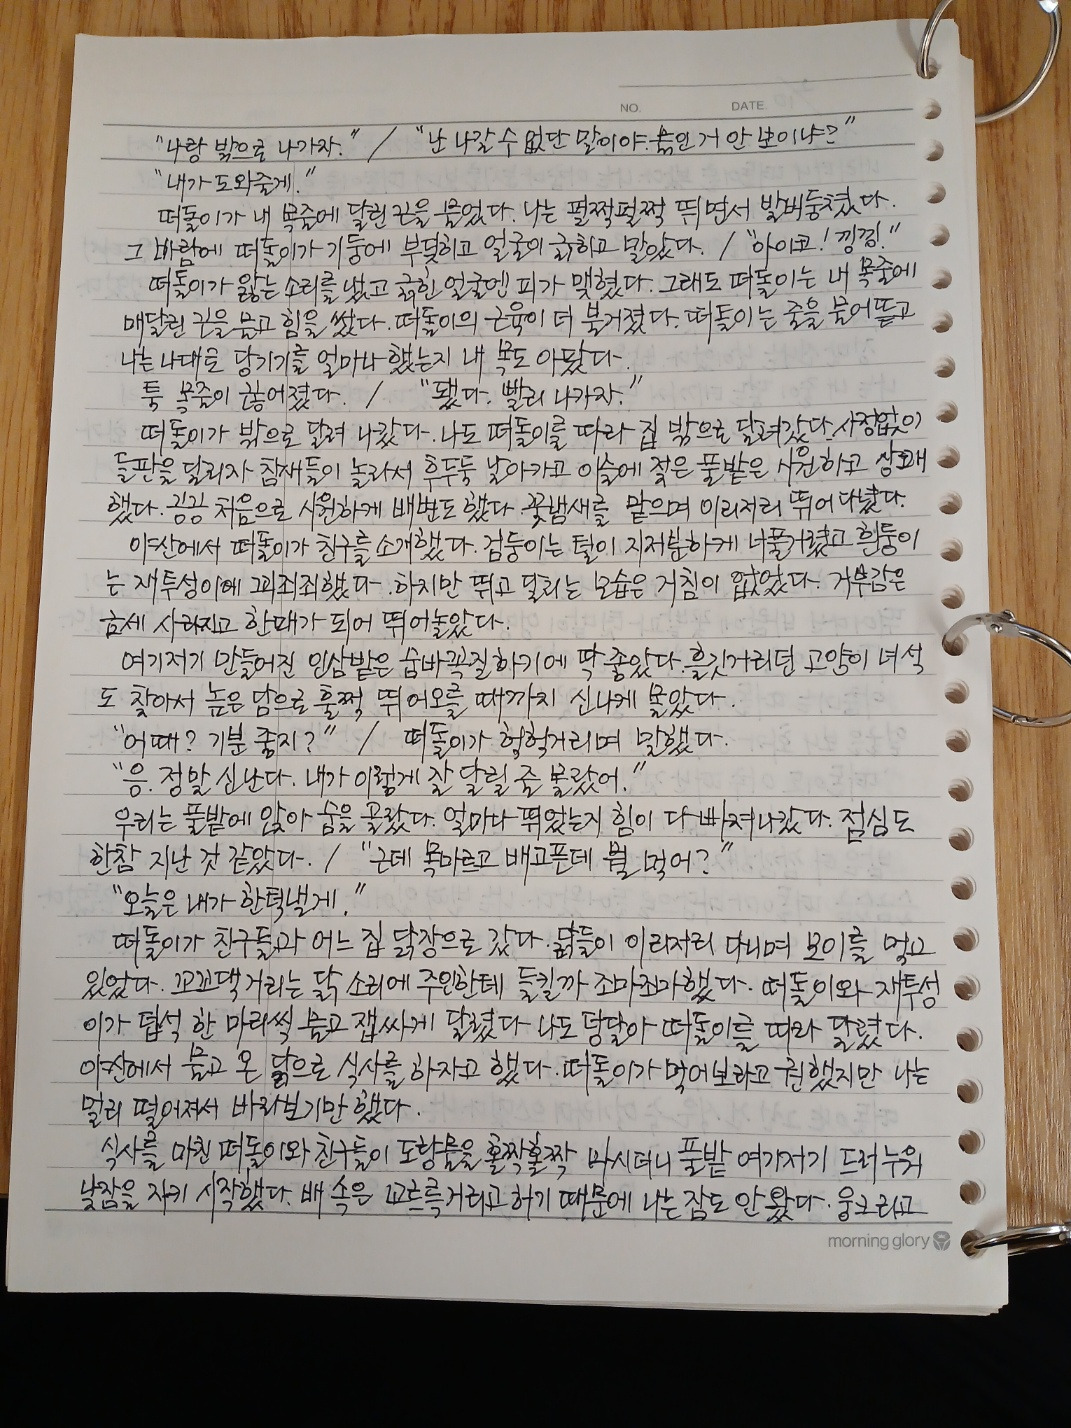 NO. DATE
"나랑 밖으로 나가자." / "난 나갈 수 없단 말이야. 묶인 거 안 보이냐?"
"내가 도와줄게."
떠돌이가 내 목줄에 달린 끈을 물었다. 나는 펄쩍펄쩍 뛰면서 발버둥쳤다.
그 바람에 떠돌이가 기둥에 부딪히고 얼굴이 긁히고 말았다. / "아이코! 낑낑."
떠돌이가 앓는 소리를 냈고 긁힌 얼굴엔 피가 맺혔다. 그래도 떠돌이는 내 목줄에
매달린 끈을 물고 힘을 썼다. 떠돌이의 근육이 더 불거졌다. 떠돌이는 줄을 물어뜯고
나는 나대로 당기기를 얼마나 했는지 내 목도 아팠다.
툭 목줄이 끊어졌다. / "됐다. 빨리 나가자."
떠돌이가 밖으로 달려 나갔다. 나도 떠돌이를 따라 집 밖으로 달려갔다. 사정없이
들판을 달리자 참새들이 놀라서 후두둑 날아가고 이슬에 젖은 풀밭은 시원하고 상쾌
했다. 킁킁 처음으로 시원하게 배변도 했다. 꽃냄새를 맡으며 이리저리 뛰어 다녔다.
야산에서 떠돌이가 친구를 소개했다. 검둥이는 털이 지저분하게 너풀거렸고 흰둥이
는 재투성이에 꾀죄죄했다. 하지만 뛰고 달리는 모습은 거침이 없었다. 거부감은
금세 사라지고 한패가 되어 뛰어놀았다.
여기저기 만들어진 인삼밭은 숨바꼭질하기에 딱 좋았다. 흘깃거리던 고양이 녀석
도 찾아서 높은 담으로 훌쩍 뛰어오를 때까지 신나게 몰았다.
"어때? 기분 좋지?" / 떠돌이가 헉헉거리며 말했다.
"응. 정말 신난다. 내가 이렇게 잘 달릴 줄 몰랐어."
우리는 풀밭에 앉아 숨을 골랐다. 얼마나 뛰었는지 힘이 다 빠져나갔다. 점심도
한참 지난 것 같았다. / "근데 목마르고 배고픈데 뭘 먹어?"
"오늘은 내가 한턱낼게."
떠돌이가 친구들과 어느 집 닭장으로 갔다. 닭들이 이리저리 다니며 모이를 먹고
있었다. 꼬꼬댁거리는 닭 소리에 주인한테 들킬까 조마조마했다. 떠돌이와 재투성
이가 덥석 한 마리씩 물고 잽싸게 달렸다. 나도 덩달아 떠돌이를 따라 달렸다.
야산에서 물고 온 닭으로 식사를 하자고 했다. 떠돌이가 먹어보라고 권했지만 나는
멀리 떨어져서 바라보기만 했다.
식사를 마친 떠돌이와 친구들이 도랑물을 홀짝홀짝 마시더니 풀밭 여기저기 드러누워
낮잠을 자기 시작했다. 배 속은 꼬르륵거리고 허기 때문에 나는 잠도 안 왔다. 웅크리고
morning glory